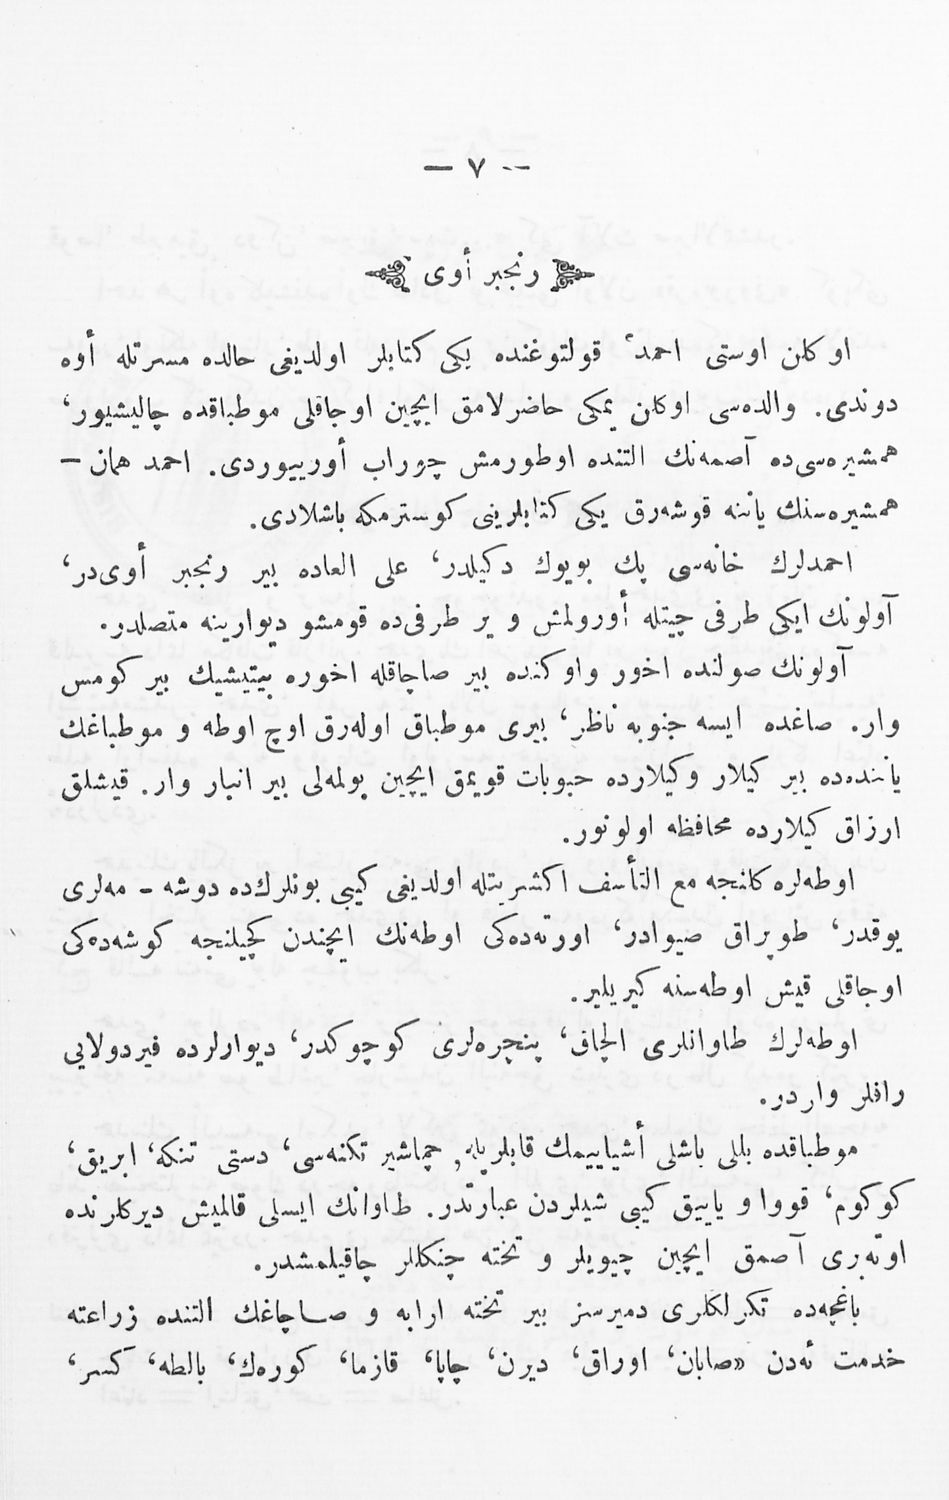 — ٧ —
رنجبر أوی
اوكلن اوستی احمد، قولتوغنده یكی كتابلر اولدیغی حالده مسرتله أوه
دوندی. والده‌سی اوكلن یمكی حاضرلامق ایچین اوجاقلی موطباقده چالیشیور،
همشیره‌سی‌ده آصمه‌نك التنده اوطورمش چوراب أورییوردی. احمد همان —
همشیره‌سنك یاننه قوشه‌رق یكی كتابلرینی كوسترمكه باشلادی.
احمدلرك خانه‌سی پك بویوك دكیلدر، علی العاده بیر رنجبر أوی‌در،
آولونك ایكی طرفی چیتله أورولمش و بر طرفی‌ده قومشو دیوارینه متصلدر.
آولونك صولنده اخور واوكنده بیر صاچاقله اخوره بیتیشیك بیر كومس
وار. صاغده ایسه جنوبه ناظر، بیری موطباق اوله‌رق اوچ اوطه و موطباغك
یاننده‌ده بیر كیلار وكیلارده حبوبات قویمق ایچین بولمه‌لی بیر انبار وار. قیشلق
ارزاق كیلارده محافظه اولونور.
اوطه‌لره كلنجه مع التأسف اكثریتله اولدیغی كیبی بونلرك‌ده دوشه - مه‌لری
یوقدر، طوپراق صیوادر، اورته‌ده‌كی اوطه‌نك ایچندن كچیلنجه كوشه‌ده‌كی
اوجاقلی قیش اوطه‌سنه كیریلیر.
اوطه‌لرك طاوانلری الچاق، پنچره‌لری كوچوكدر، دیوارلرده فیردولایی
رافلر واردر.
موطباقده بللی باشلی أشیاییمك قابلریله, چماشیر تكنه‌سی، دستی تنكه، ابریق،
كوكوم، قووا و یاییق كیبی شیلردن عبارتدر. طاوانك ایسلی قالمیش دیركلرنده
اوته‌بری آصمق ایچین چیویلر و تخته چنكللر چاقیلمشدر.
باغچه‌ده تكرلكلری دمیرسز بیر تخته ارابه و صاچاغك التنده زراعته
خدمت ئه‌دن «صابان، اوراق، دیرن، چاپا، قازما، كوره‌ك، بالطه، كسر،